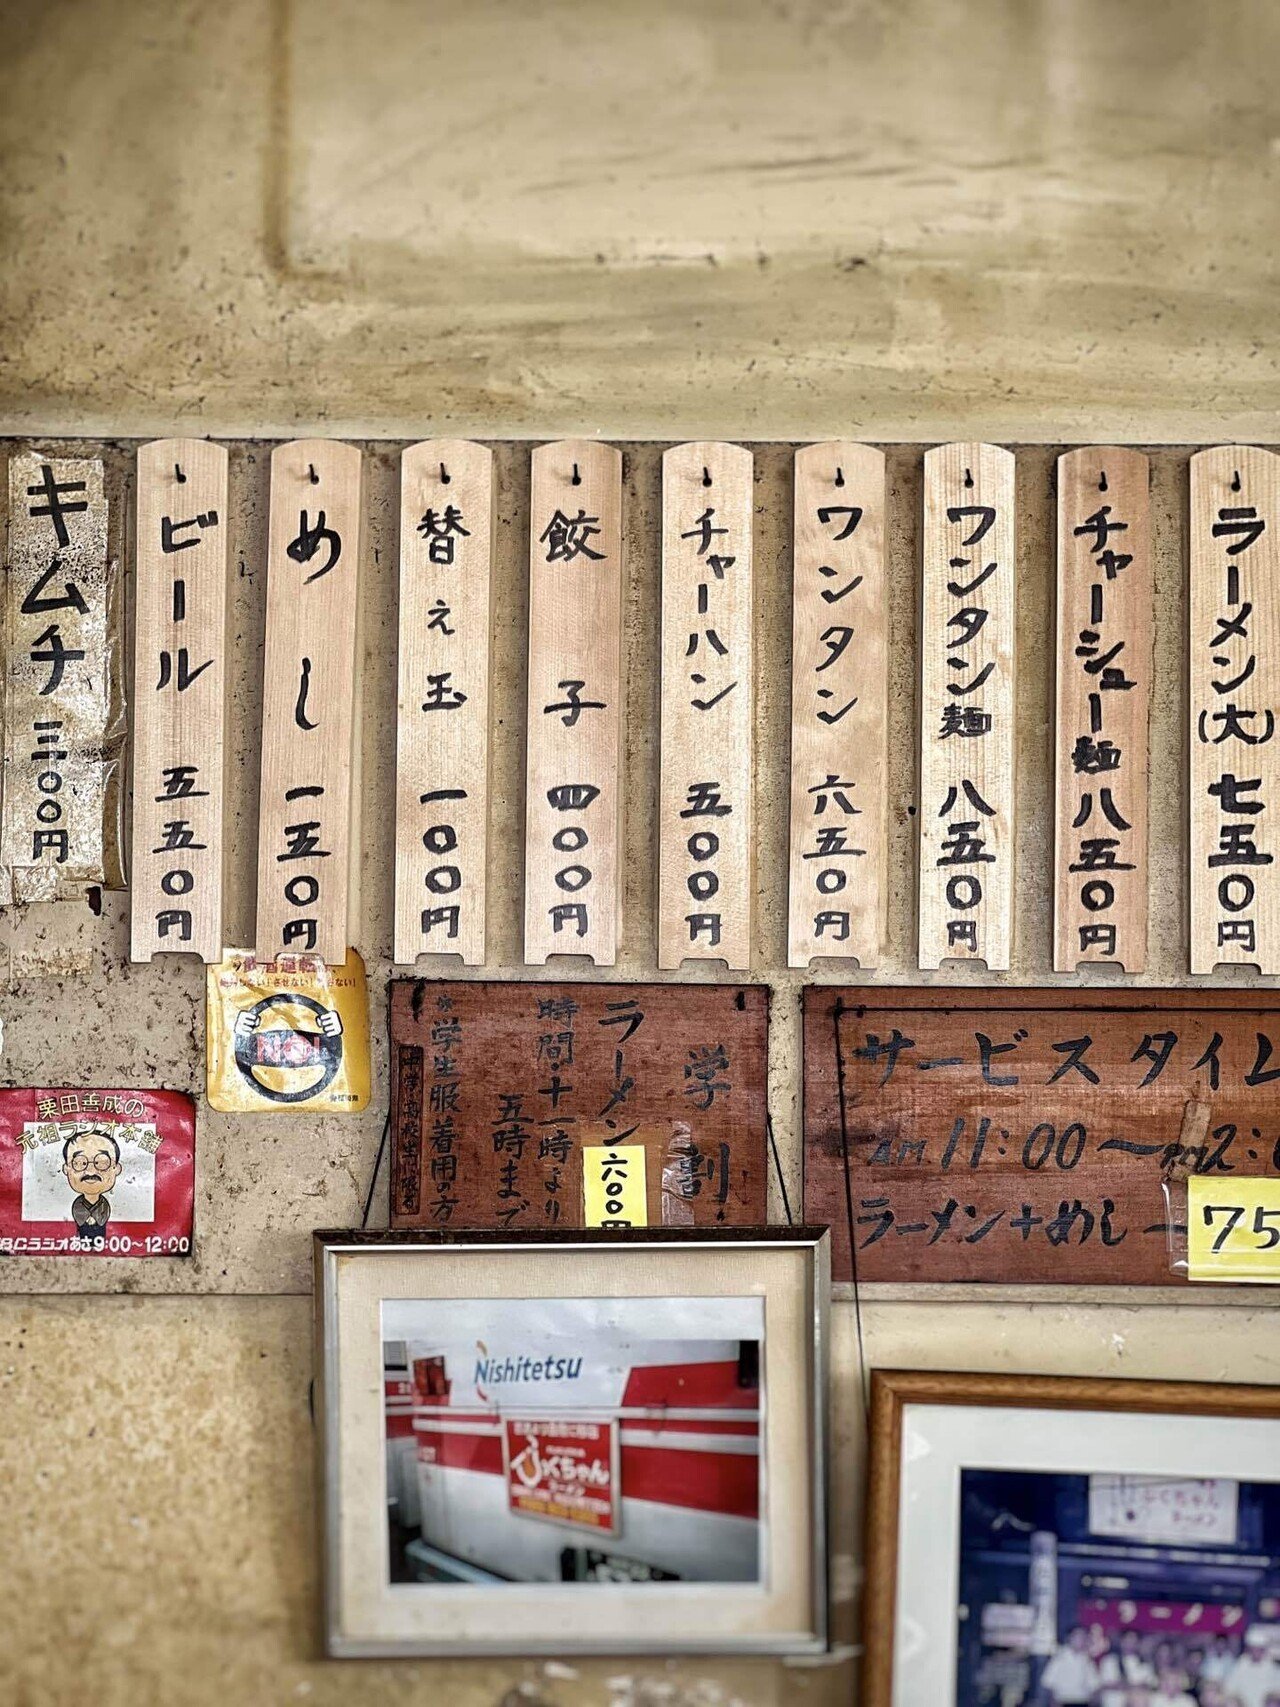 ラーメン(大) 七五〇円
チャーシュー麺 八五〇円
ワンタン麺 八五〇円
ワンタン 六五〇円
チャーハン 五〇〇円
餃子 四〇〇円
替え玉 一〇〇円
めし 一五〇円
ビール 五五〇円
キムチ 三〇〇円
サービスタイム
AM 11:00〜PM2:
ラーメン+めし
75
学割
ラーメン 六〇〇円
時間・十一時より
五時まで
*学生服着用の方
栗田善成の
元祖ラジオ本舗
あさ9:00~12:00
Nishitetsu
ふくちゃん
ラーメン
ふくちゃん
ラーメン
ラーメン